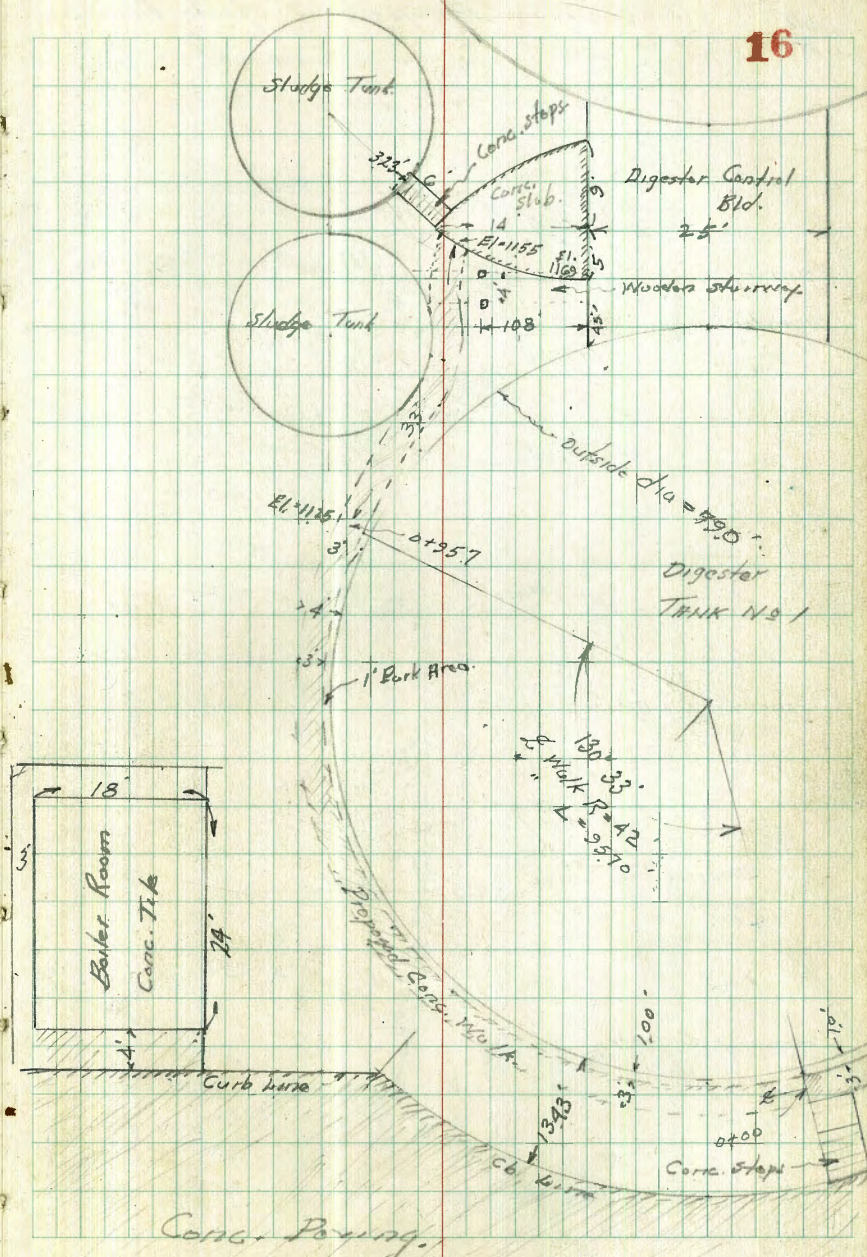 16
Sludge Tank
Conc. steps
323'
6
Conc.
slab.
14
El=1155
El.
1169
9
5
Digester Control
Bld.
25'
Wooden Stairway
4'
108'
45'
Sludge Tank
33
Outside dia = 790'
El.=1125
0+957
3'
Digester
TANK No 1
4'
3'
1' Park Area.
130° 33'
Walk R = 42
" " = 95.70
18'
Boiler Room
Conc. Tile
24'
4'
Curb Line
Proposed Conc. Walk
1.00'
3'
13.43'
Cb. Line
0+00
Conc. Steps
3'
1.0'
Conc. Paving.